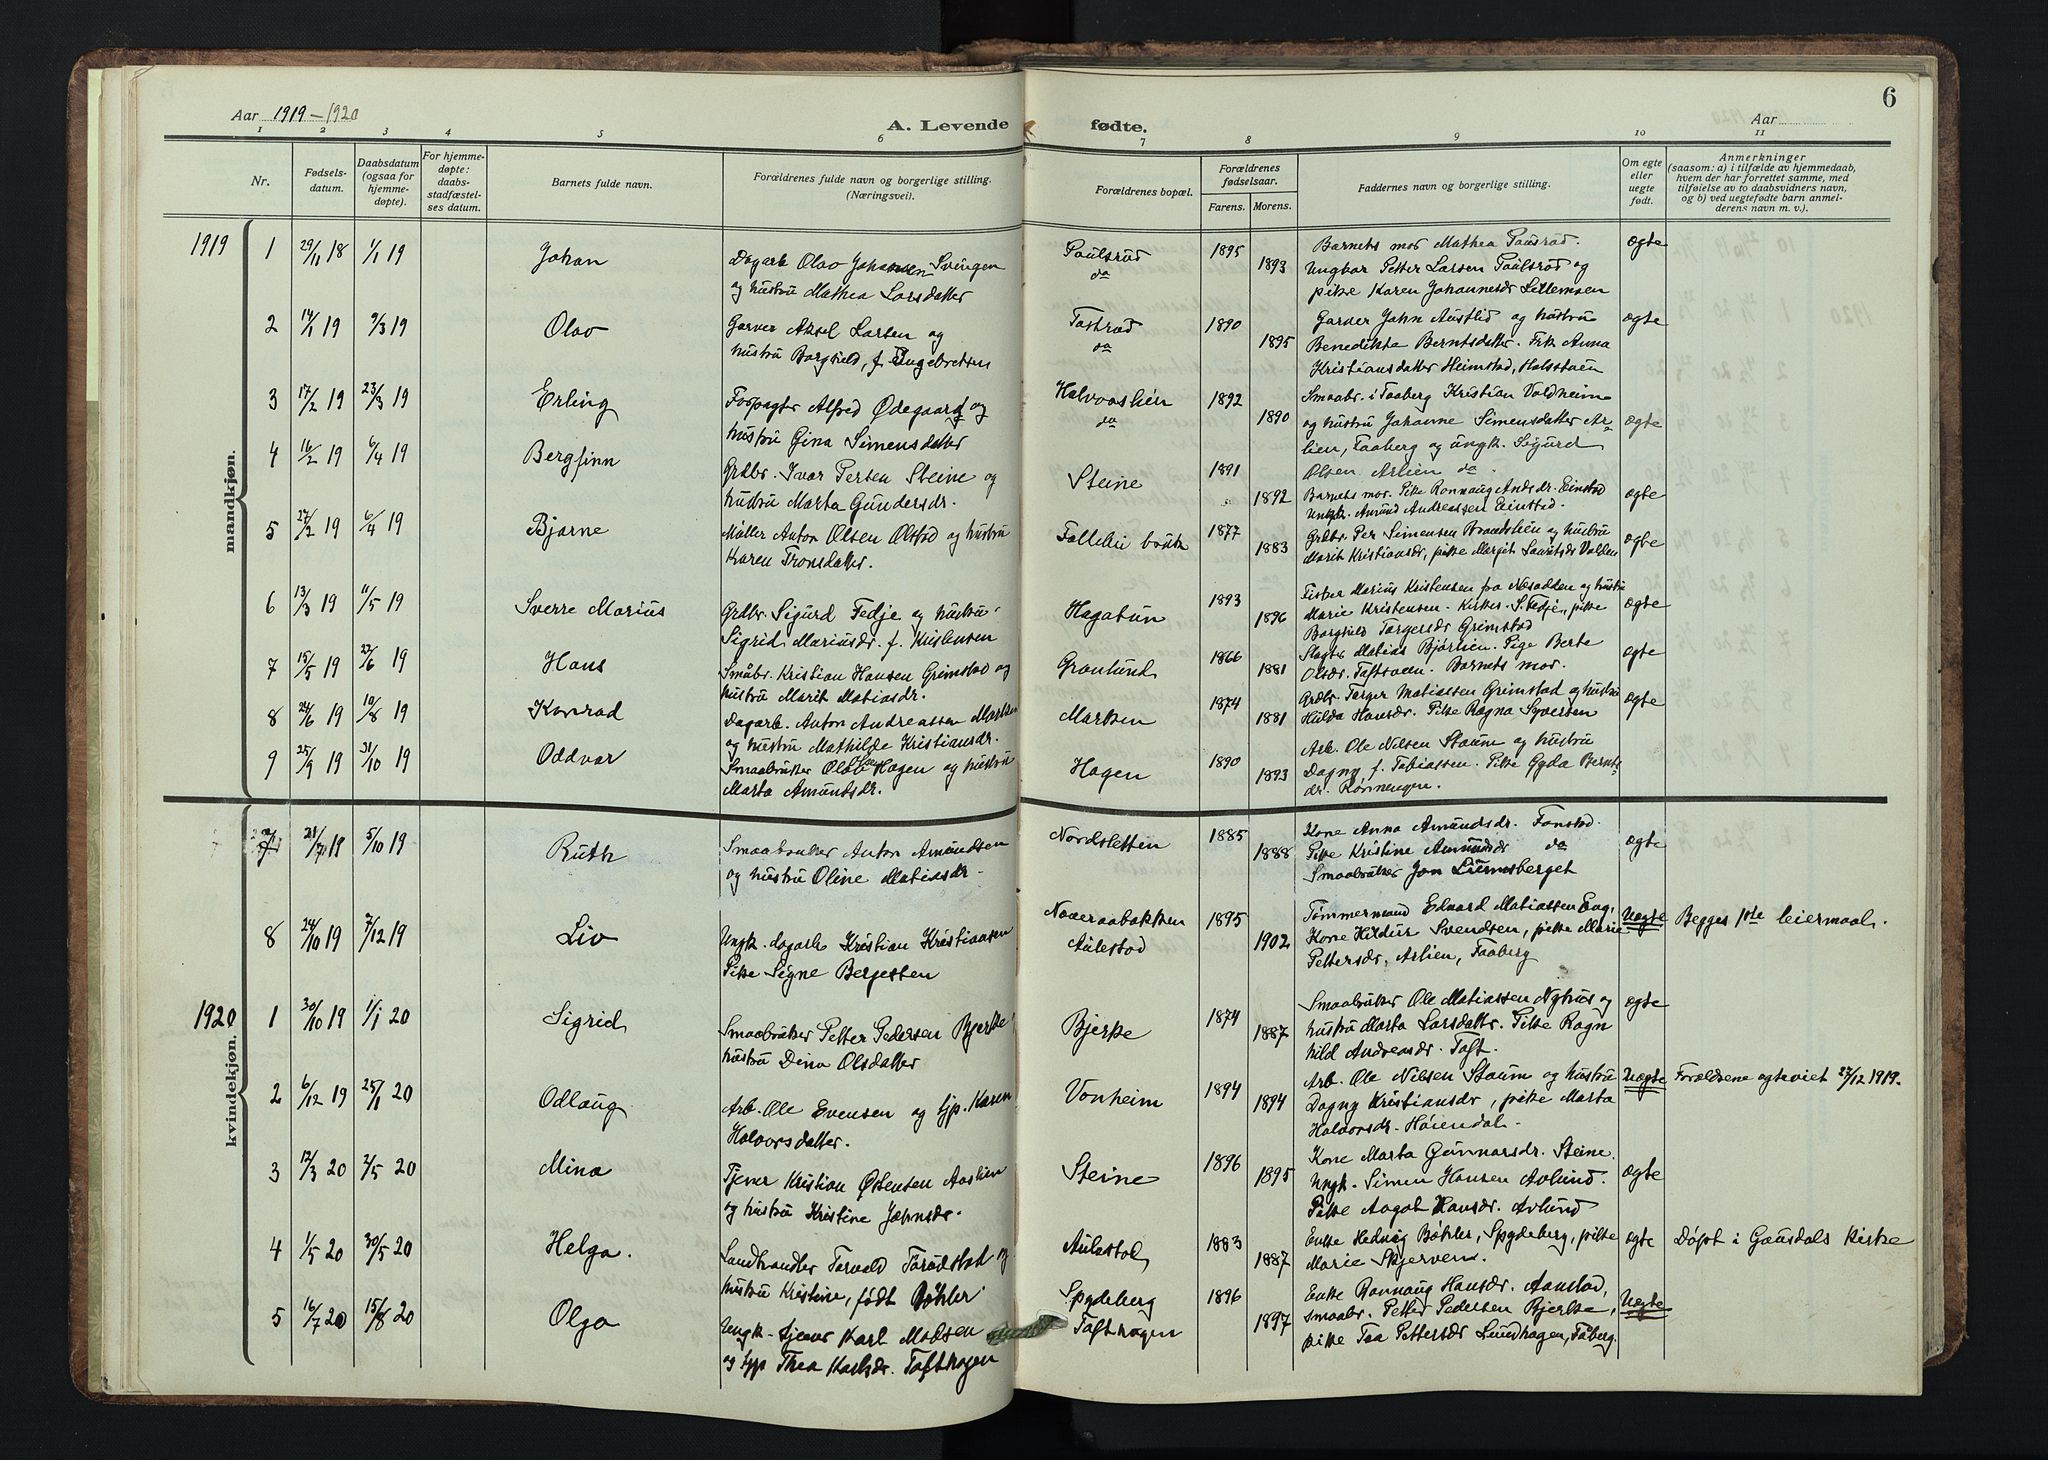 Aar 1919-1920
A. Levende fødte.
Aar
6
1 2 3 4 5 6 7 8 9 10 11
Nr.
Fødsels-
datum.
Daabsdatum
(ogsaa for
hjemme-
døpte).
For hjemme-
døpte:
daabs-
stadfæstel-
ses datum.
Barnets fulde navn.
Forældrenes fulde navn og borgerlige stilling.
(Næringsvei).
Forældrenes bopæl.
Forældrenes
fødselsaar.
Farens. Morens.
Faddernes navn og borgerlige stilling.
Om egte
eller
uegte
født.
Anmerkninger
(saasom: a) i tilfælde av hjemmedaab,
hvem der har forrettet samme, med
tilføielse av to daabsvidners navn,
og b) ved uegtefødte barn anmel-
derens navn m. v.).
mandkjøn.
1919 1 29/11 18 1/1 19 Johan
Dagarb Olav Johansen Svingen
og hustru Mathea Larsdatter
Paulsrud
da
1895 1893
Barnets mor Mathea Paulsrud.
Ungkar Petter Larsen Paulsrud og
pike Karen Johannesdr Lillemoen
ægte
2 14/1 19 9/3 19 Olav
Garver Aksel Larsen og
hustru Borghild, f. Engebretsen
da
1890 1895
Garver John Austlid og hustru
Benedikta Berntsdatter. Frk Anna
Kristiansdatter Heimstad,
ægte
3 17/2 19 23/3 19 Erling
Forpagter Alfred Ødegaard og
hustru Gina Simensdatter
Halvorslien
da
1892 1890
Smaabr. i Faaberg Kristian Valdheim
og hustru Johanne Simensdatter Ar-
lien, Faaberg og ungk. Sigurd
Olsen Arlien da
ægte
4 16/2 19 6/4 19 Bergfinn
Grdbr. Ivar Persen Steine og
hustru Marta Gundersdr.
Steine
1891 1892
Barnets mor. Pike Rønnaug Andsdr. Einstad
Ungk. Amund Andreassen Einstad.
ægte
5 27/2 19 6/4 19 Bjarne
Møller Anton Olsen Olstad og hustru
Karen Tronsdatter.
Follebu bruk
1877 1883
Grdbr. Per Simensen Brandslien og hustru
Marit Kristiansdr, pike Margit Lauritsdr Volden
ægte
6 13/3 19 11/5 19 Sverre Marius
Grdbr. Sigurd Fedje og hustru
Sigrid Mariusdr. f. Kristensen
Hagatun
1893 1896
Fisker Marius Kristensen fra Nesodden og hustru
Marie Kristensen. Kirkes. S. Fedje, pike
Borghild Torgersdr Grimstad
ægte
7 15/5 19 22/6 19 Hans
Småbr. Kristian Hansen Grimstad og
hustru Marit Matiasdr.
Granlund
1866 1881
Slagter Matias Bjørlien. Pige Berte
Olsdr. Barnets mor.
ægte
8 24/6 19 10/8 19 Konrad
Dagarb. Anton Andreassen Marken
og hustru Mathilde Kristiansdr.
Marken
1874 1881
Grdbr. Torger Matiassen Grimstad og hustru
Hulda Hansdr. Pike Ragna Syversen
ægte
9 25/9 19 31/10 19 Oddvar
Smaabruker Hagen og hustru
Marta Amundsdr.
Hagen
1890 1893
Arb. Ole Nilsen Staum og hustru
Dagny f. Tobiassen. Pike Gyda Bernts-
dr. Rønnengen.
kvindekjøn.
7 21/7 19 5/10 19 Ruth
Smaabruker Anton Amundsen
og hustru Oline Matiasdr.
Nordsletten
1885 1888
Kone Anna Amundsdr. Fonstad.
Pike Kristine Amundsdr da
Smaabruker Jon Liumsberget
ægte
8 24/10 19 7/12 19 Liv
Ungk. dagarb Kristian Kristiansen
Pike Signe Bergesten
Naveraabakken
Aulestad
1895 1902
Tømmermand Edvard Matiassen Eng,
Kone Hildur Svendsen, pike Marie
Pettersdr. Arlien, Faaberg
Uegte
Begges 1ste leiermaal.
1920 1 30/10 19 1/1 20 Sigrid
Smaabruker Petter Pedersen Bjerke
hustru Dina Olsdatter
Bjerke
1874 1887
Smaabruker Ole Matiassen Nyhus og
hustru Marta Larsdatter. Pike Ragn
hild Andreasdr. Toft.
ægte
2 6/12 19 25/1 20 Odlaug
Arb. Ole Evensen og tjp. Karen
Halvorsdatter.
Vonheim
1894 1894
Arb. Ole Nilsen Staum og hustru
Dagny Kristiansdr, pike Marta
Halvorsdr. Høiendal.
Uegte
Forældrene egteviet 27/12 1919.
3 12/3 20 2/5 20 Mina
Tjener Kristian Østensen Aaslien
og hustru Kristine Johnsdr.
Steine
1896 1895
Kone Marta Gunnarsdr. Steine.
Ungk. Simen Hansen Avlund.
Pike Aagot Hansdr. Avlund
ægte
4 1/5 20 30/5 20 Helga.
Landhandler Torvald Torudstad og
hustru Kristine, født Bøhler
Aulestad
1883 1887
Enke Hedvig Bøhler, Spydeberg, pike
Marie Skjerven.
ægte
Døpt i Gausdals kirke
5 16/7 20 15/8 20 Olga
Ungk. tjener Karl Madsen
og tjp Thea Karlsdr. Tofthagen
Spydeberg
Tofthagen
1896 1897
Enke Rønnaug Hansdr. Aamstad,
smaabr. Petter Pedersen Bjerke,
pike Tea Pettersdr Lundhagen, Fåberg.
Uegte